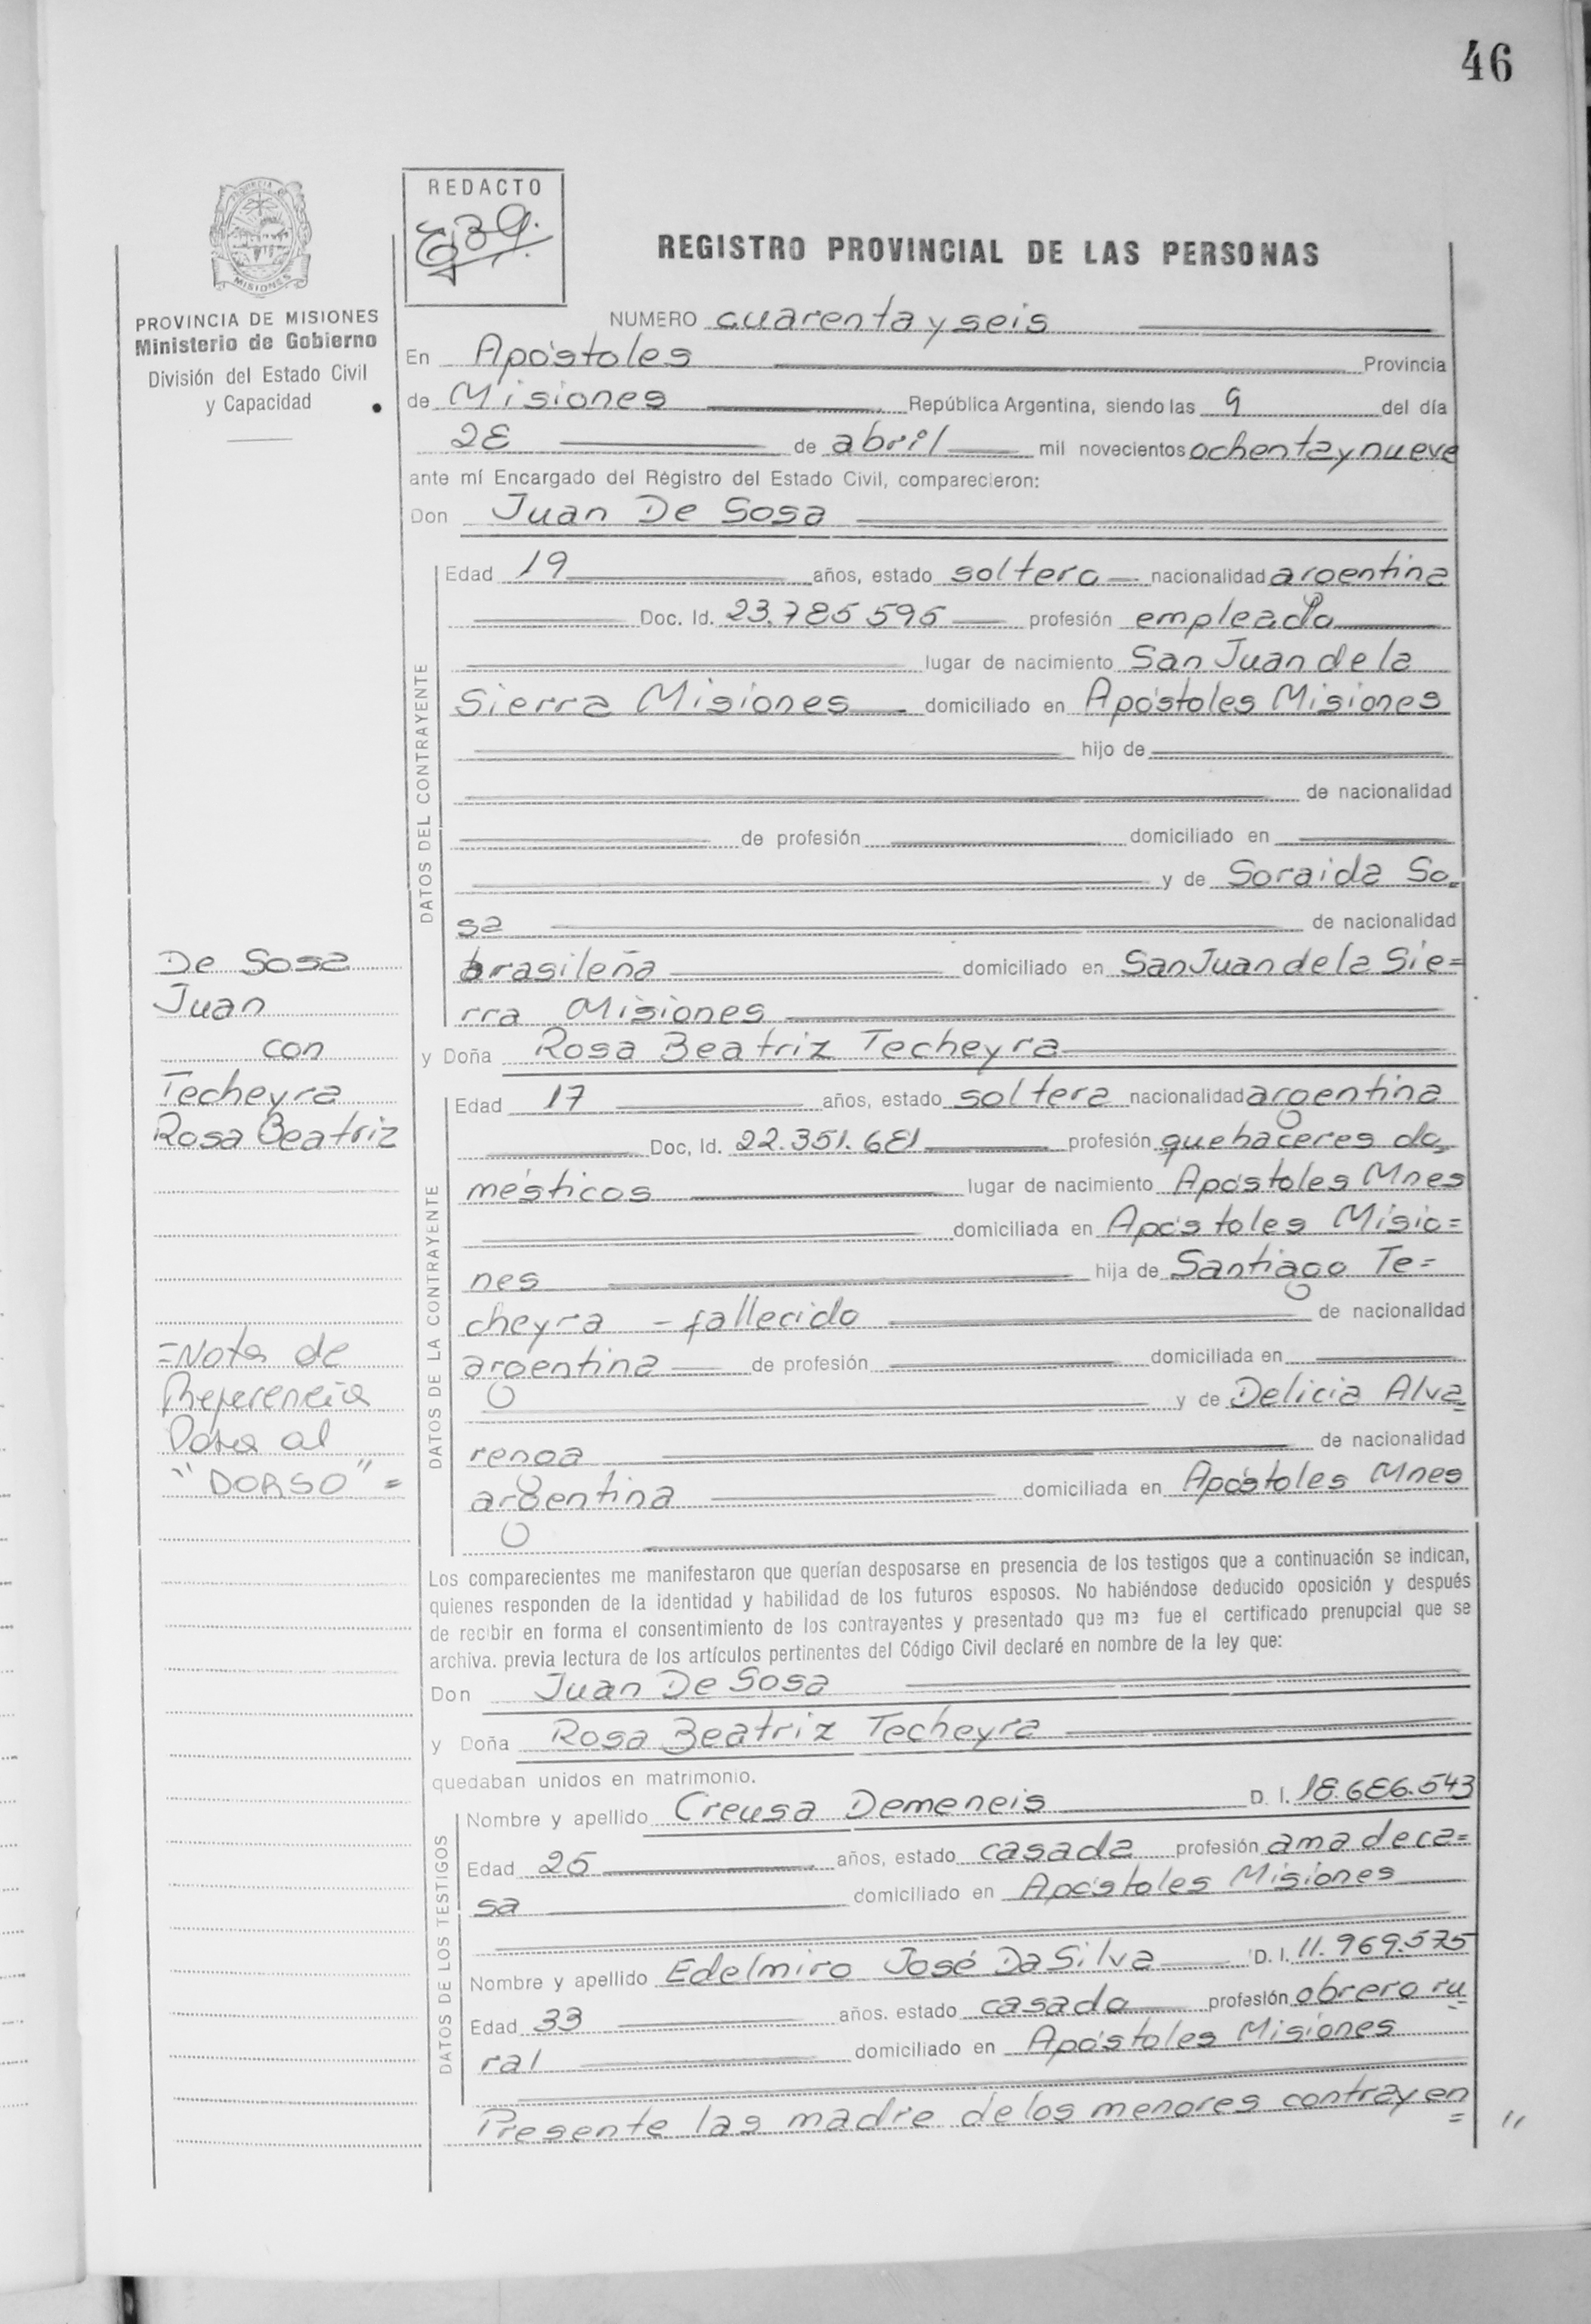 46
REDACTO
REGISTRO PROVINCIAL DE LAS PERSONAS
MISIONES
PROVINCIA DE MISIONES
Ministerio de Gobierno
División del Estado Civil
y Capacidad
NUMERO cuarenta y seis
En Apóstoles Provincia
de Misiones República Argentina, siendo las 9 del día
28 de abril mil novecientos ochenta y nueve
ante mí Encargado del Registro del Estado Civil, comparecieron:
Don Juan De Sosa
DATOS DEL CONTRAYENTE
Edad 19 años, estado soltero nacionalidad argentina
Doc. Id. 23.785 595 profesión empleado
lugar de nacimiento San Juan de la
Sierra Misiones domiciliado en Apóstoles Misiones
hijo de
de nacionalidad
de profesión domiciliado en
y de Soraida So=
sa de nacionalidad
brasileña domiciliado en San Juan de la Sie=
rra Misiones
De Sosa
Juan
con
Techeyra
Rosa Beatriz
y Doña Rosa Beatriz Techeyra
DATOS DE LA CONTRAYENTE
Edad 17 años, estado soltera nacionalidad argentina
Doc, Id. 22.351.681 profesión quehaceres do=
mésticos lugar de nacimiento Apóstoles Mnes
domiciliada en Apóstoles Misio=
nes hija de Santiago Te=
cheyra =fallecido de nacionalidad
argentina de profesión domiciliada en
y de Delicia Alva=
renga de nacionalidad
argentina domiciliada en Apóstoles Mnes
=Nota de
Referencia
Pasa al
"DORSO"=
Los comparecientes me manifestaron que querían desposarse en presencia de los testigos que a continuación se indican,
quienes responden de la identidad y habilidad de los futuros esposos. No habiéndose deducido oposición y después
de recibir en forma el consentimiento de los contrayentes y presentado que me fue el certificado prenupcial que se
archiva. previa lectura de los artículos pertinentes del Código Civil declaré en nombre de la ley que:
Don Juan De Sosa
y Doña Rosa Beatriz Techeyra
quedaban unidos en matrimonio.
DATOS DE LOS TESTIGOS
Nombre y apellido Creusa Demeneis D. I. 18.686.543
Edad 25 años, estado casada profesión ama de ca=
sa domiciliado en Apóstoles Misiones
Nombre y apellido Edelmiro José Da Silva D. I. 11.969.575
Edad 33 años. estado casado profesión obrero ru=
ral domiciliado en Apóstoles Misiones
Presente las madre de los menores contrayen= "